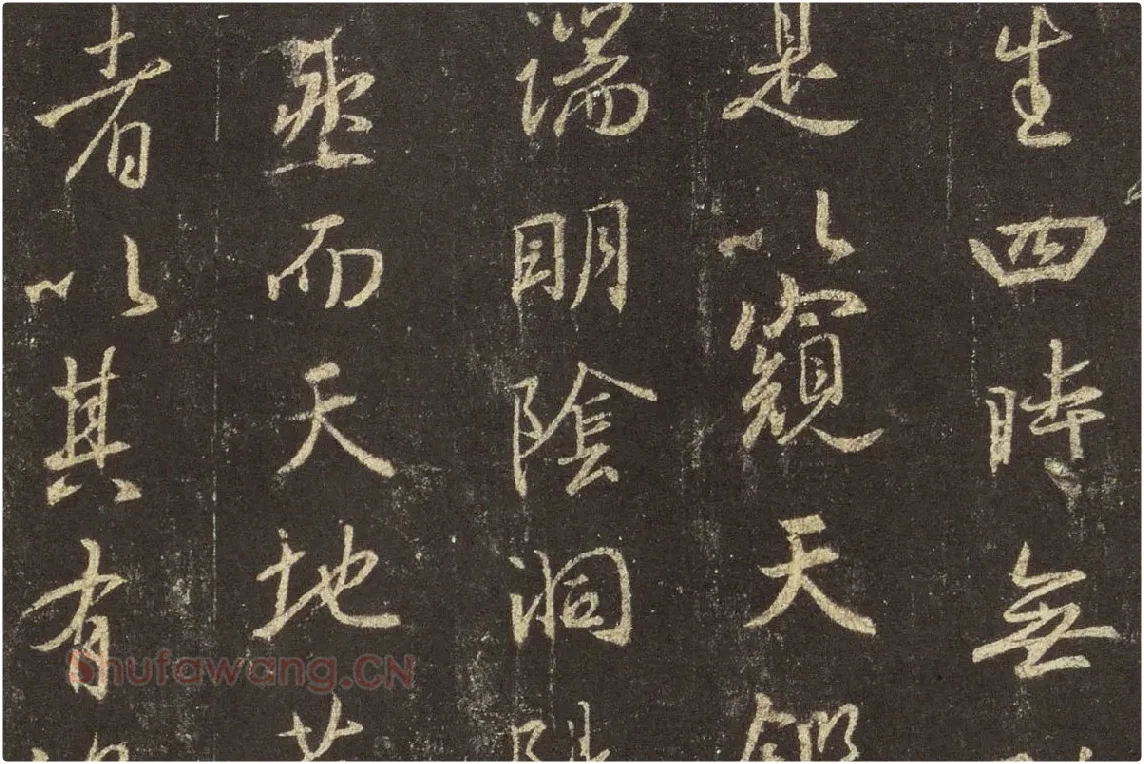 生四時無
是以窺天鑑
端明陰洞陽
然而天地
者以其有
Shufawang.CN